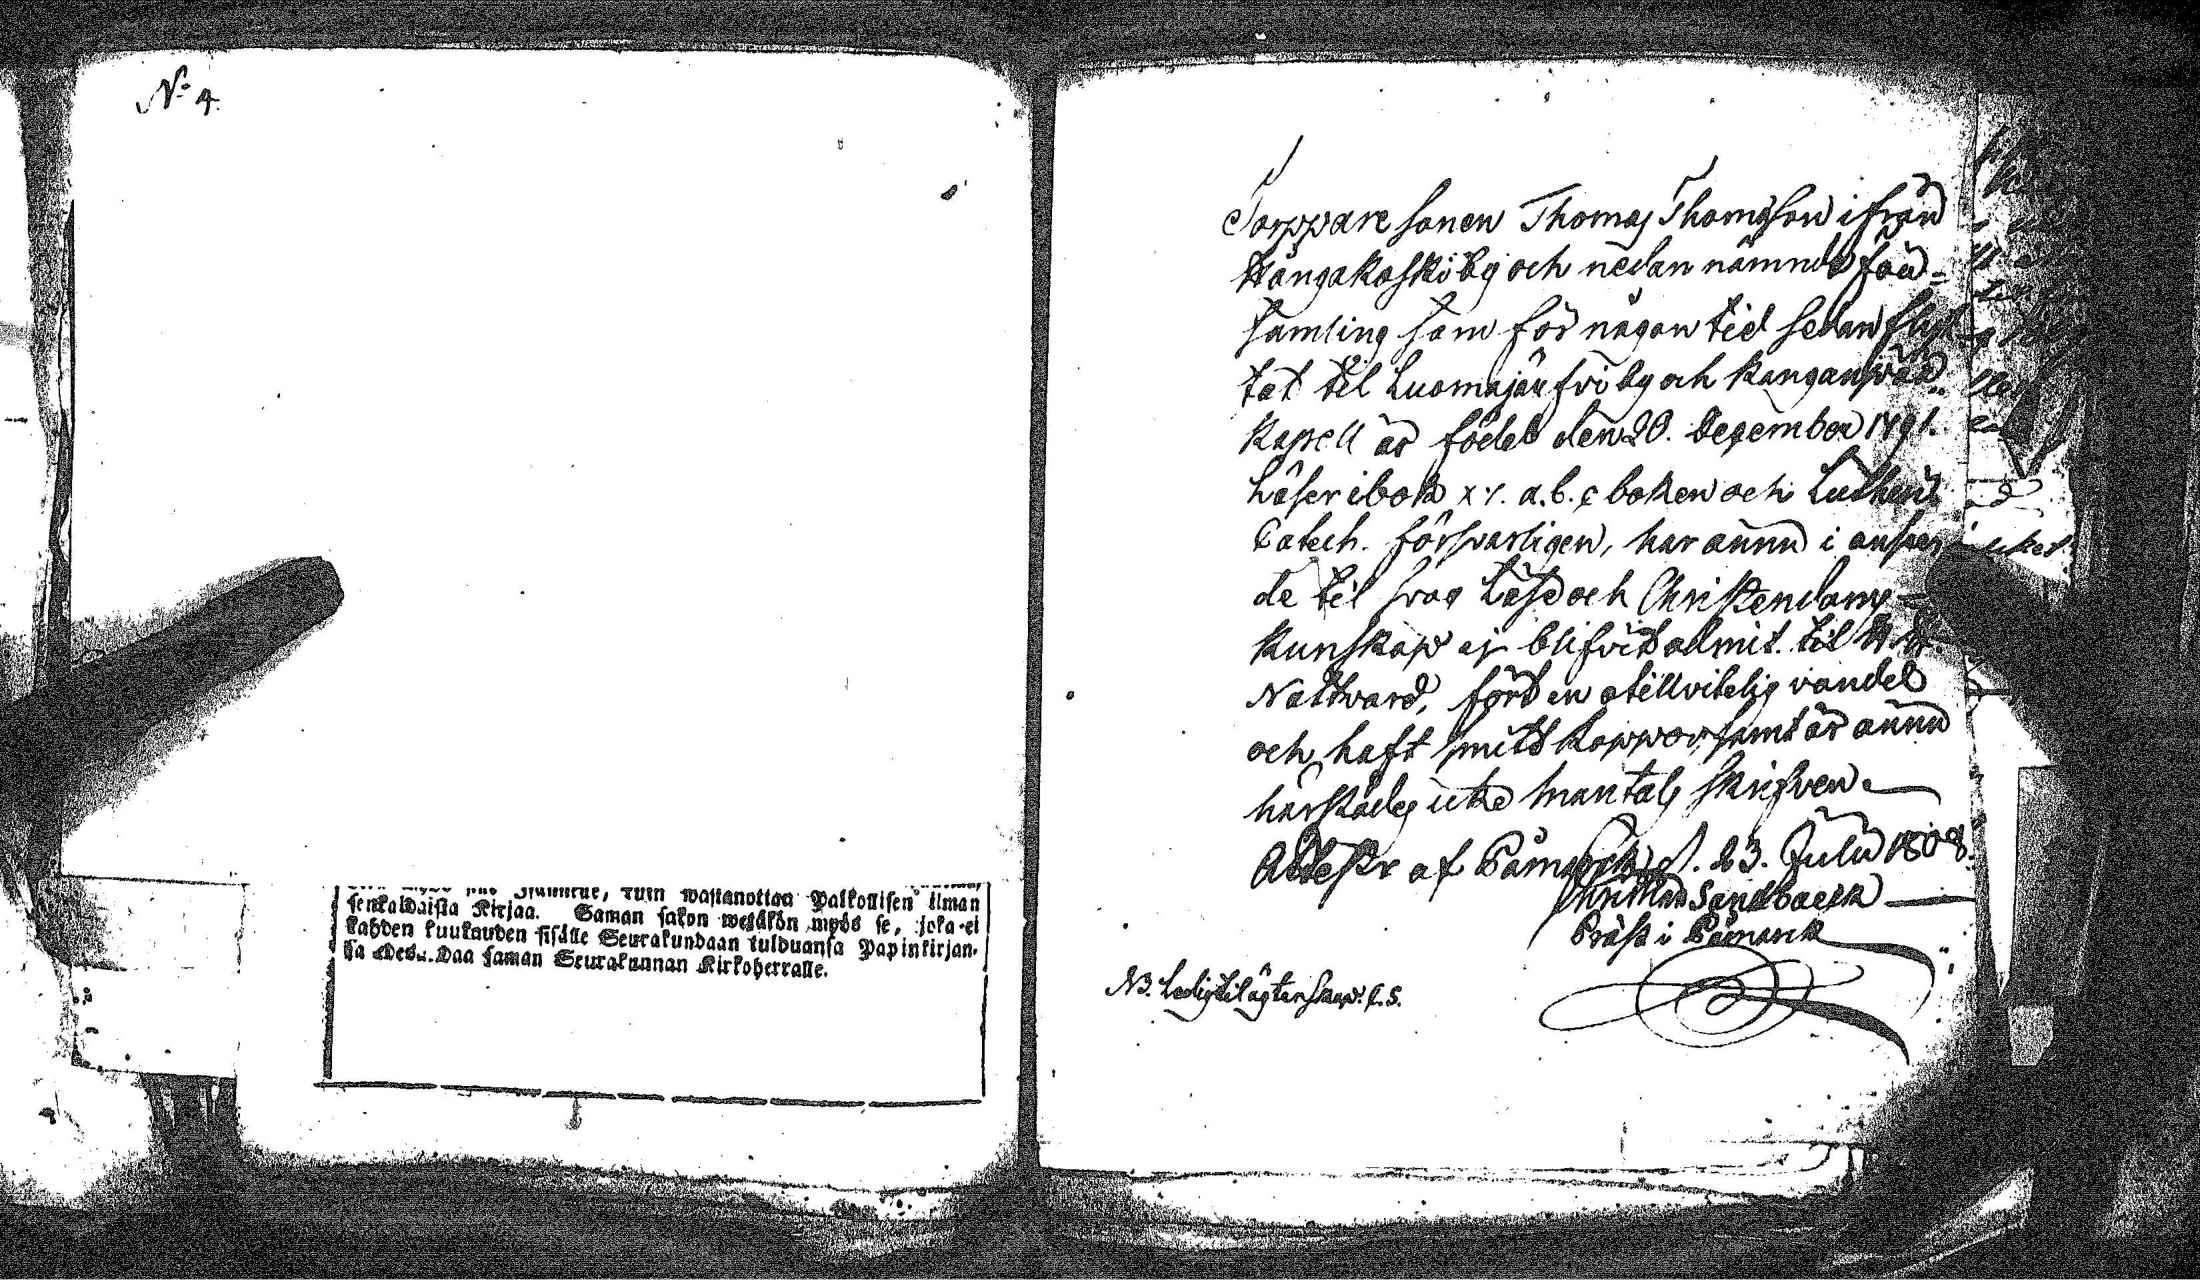 No 4.
wastanottaa Palkollisen ilman
senkaldaista Kirjaa. Saman sakon wetäkön myös se, joka ei
kahden kuukauden sisälle Seurakundaan tulduansa Papinkirjan-
sa saman Seurakunnan Kirkoherralle.
Torppare sonen Thomas Thomasson ifrån
Kångakoski by och nedan nämnde för-
samling som för någon tid sedan flyt-
tat til Luomajärfwi by och
Kapell är född den 20. December 1791.
Läser i bok a.b.c boken och Lutheri
Catech. försvarligen, har ännu i anseen-
de til svag Läse och Christendoms
Kunskap ej blifvit admit. til H. H.
Nattvard, fört en otillvitelig vandel
och haft Koppor samt är ännu
härstädes icke mantals skrifven
Attestr af Påmark d. 23. Julii 1808.
Sandbaeck
Präst i Påmark
NB. Ledig til ägtenskap. C. S.